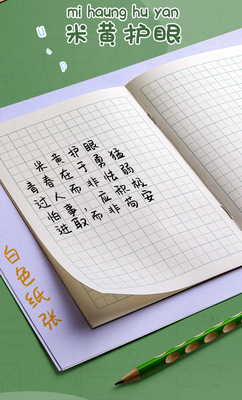 mi haung hu yan
米黄护眼
米黄护眼
青春在于勇猛
过人而非怯弱
怕事，应积极
进取而非苟安
白色纸张